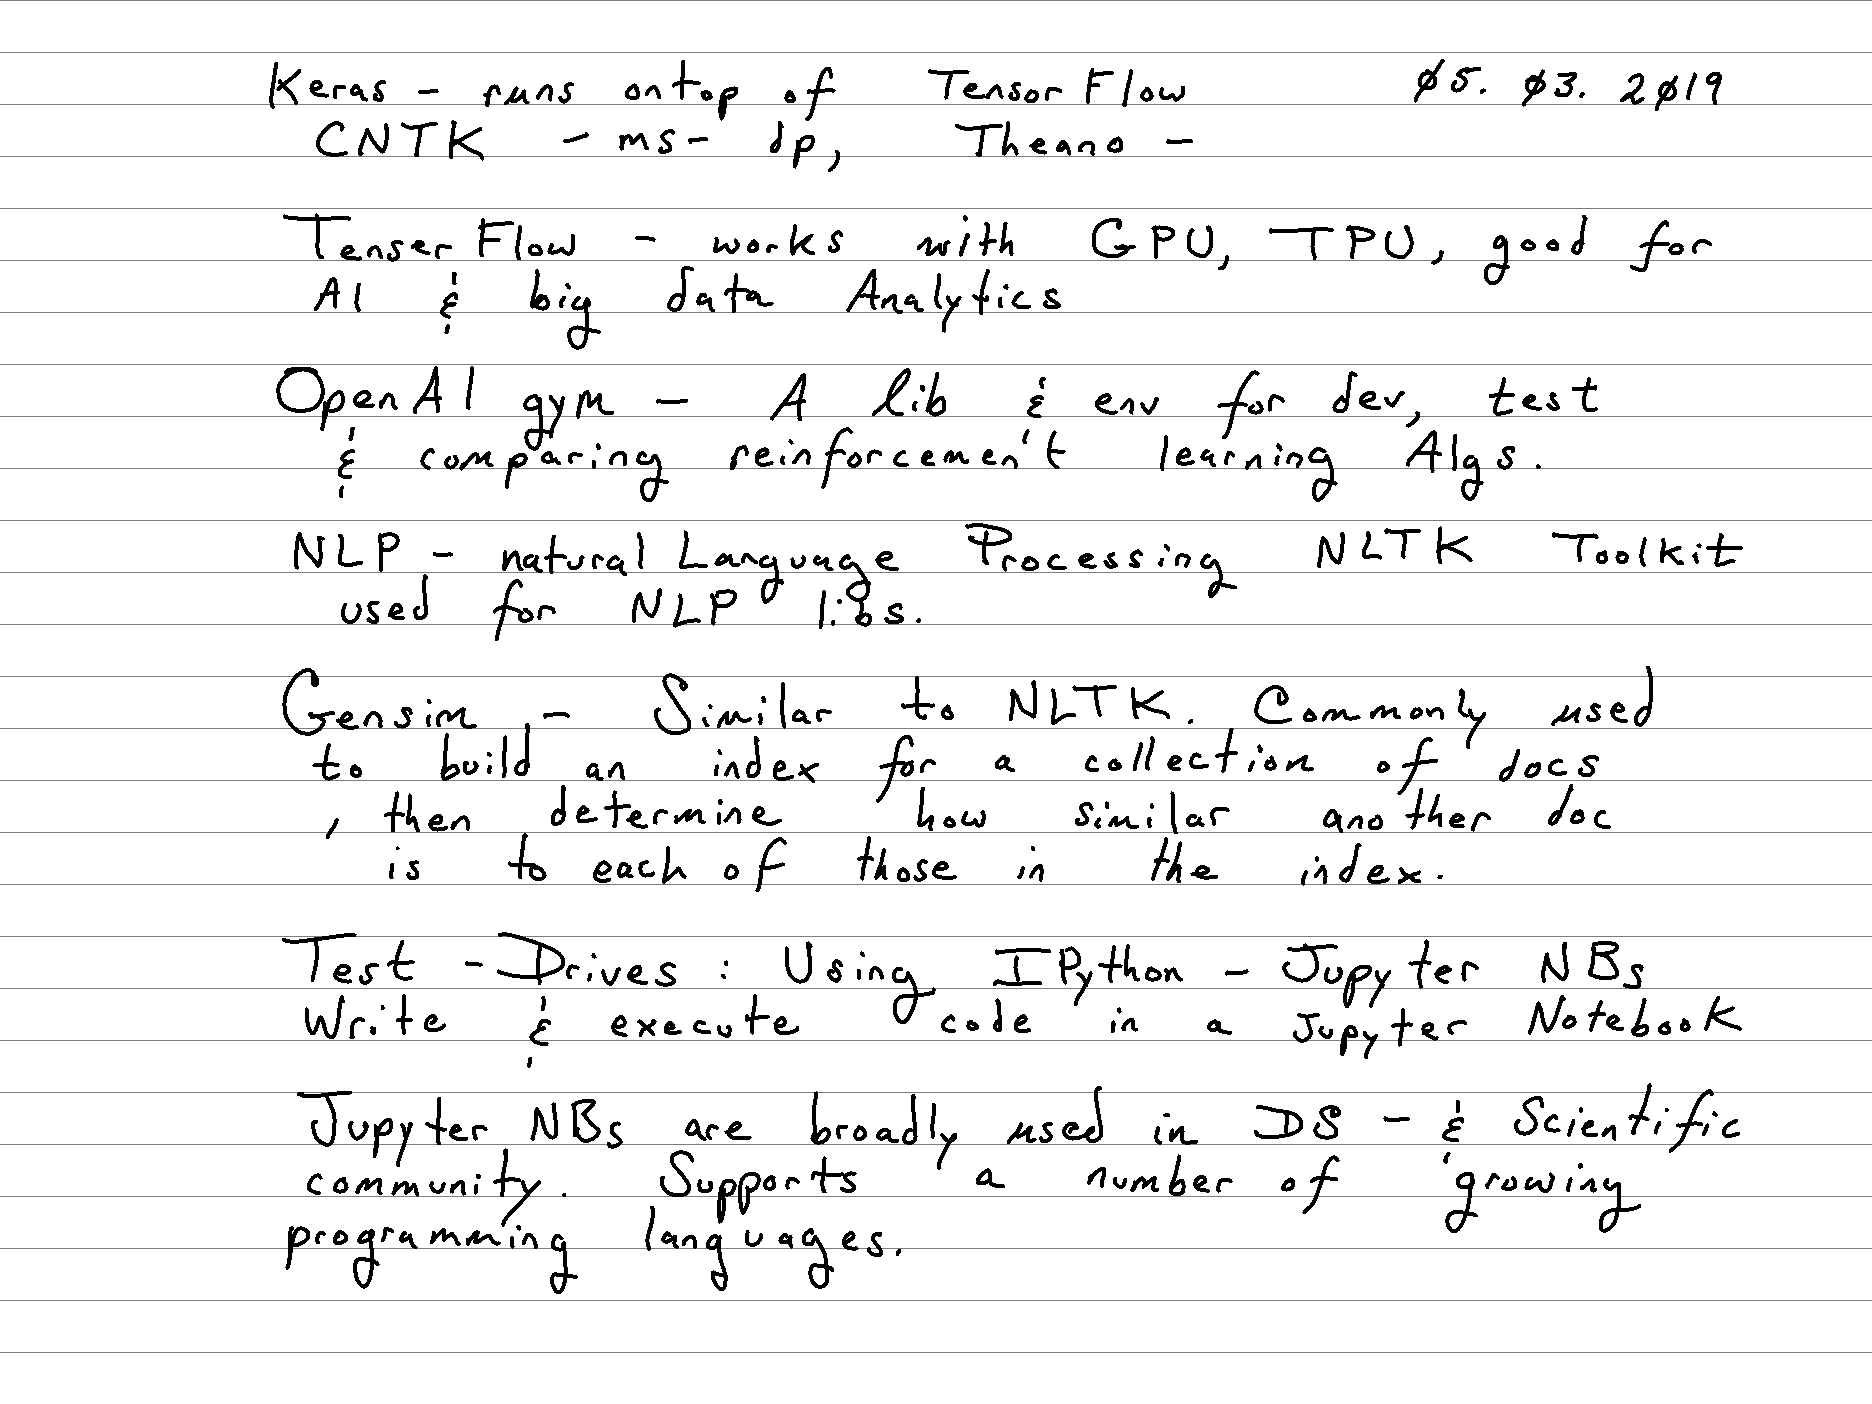 Keras - runs ontop of TensorFlow 05. 03. 2019
CNTK - ms- dp, Theano -
TenserFlow - works with GPU, TPU, good for
AI & big data Analytics
OpenAI gym - A lib & env for dev, test
& comparing reinforcemen't learning Algs.
NLP - natural Language Processing NLTK Toolkit
used for NLP libs.
Gensim - Similar to NLTK. Commonly used
to build an index for a collection of docs
, then determine how similar another doc
is to each of those in the index.
Test - Drives : Using IPython - Jupyter NBs
Write & execute code in a Jupyter Notebook
Jupyter NBs are broadly used in DS - & Scientific
community. Supports a number of growing
programming languages.